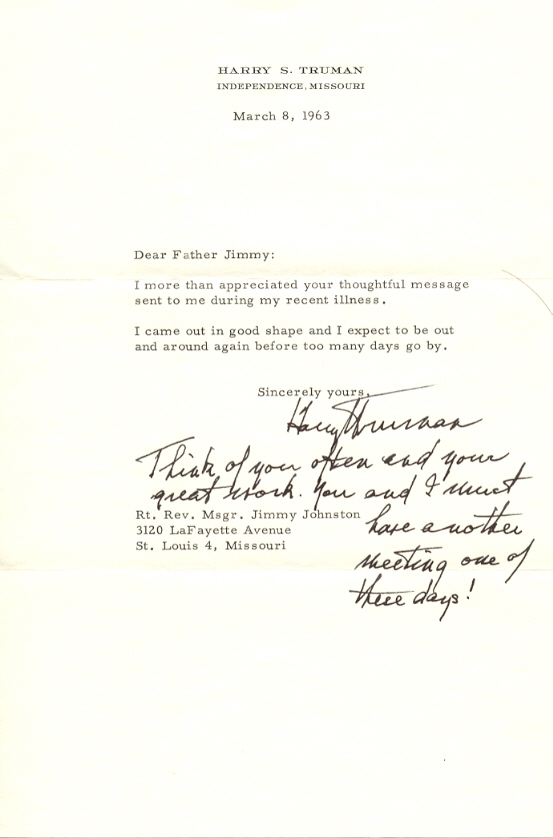 HARRY S. TRUMAN
INDEPENDENCE, MISSOURI
March 8, 1963
Dear Father Jimmy:
I more than appreciated your thoughtful message
sent to me during my recent illness.
I came out in good shape and I expect to be out
and around again before too many days go by.
Sincerely yours,
Harry Truman
Think of you often and your
great work. You and I must
have another
meeting one of
these days!
Rt. Rev. Msgr. Jimmy Johnston
3120 LaFayette Avenue
St. Louis 4, Missouri